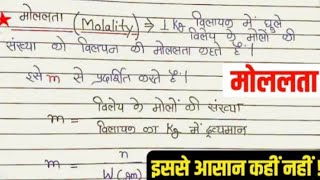 मोललता (Molality) ⇒ 1 Kg विलायन में घुले
विलेय के मोलों की
संख्या को विलयन की मोललता कहते हैं।
इसे m से प्रदर्शित करते हैं।
मोललता
m = विलेय के मोलों की संख्या
विलायन का Kg में द्रव्यमान
m = n
W(gm)
इससे आसान कहीं नहीं!